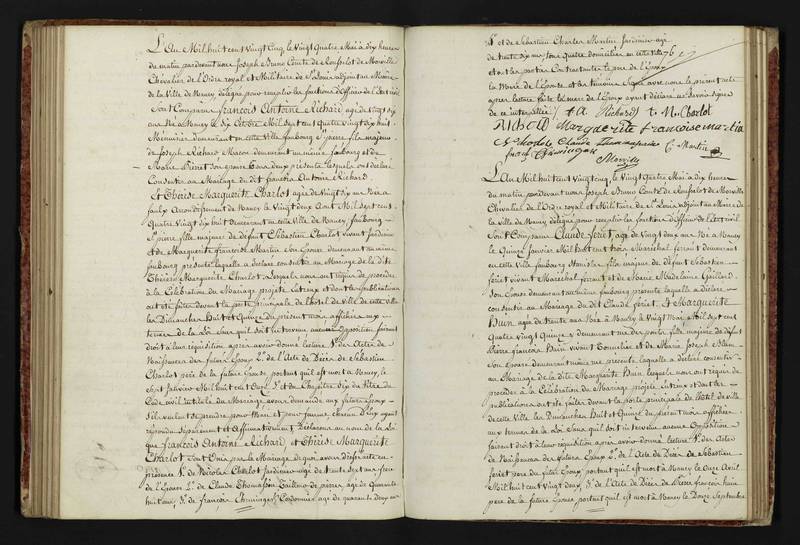 L'An Mil huit cent vingt cinq, le vingt quatre Mai à dix heures
du matin pardevant nous Joseph Bruno Comte de Rouhelot de Morville
Chevalier de l'Ordre royal et Militaire de St Louis adjoint au Maire
de la Ville de Nancy délégué pour remplir les fonctions d'officier de l'Etat civil
Sont Comparus François Antoine Richard agé de vingt six
ans Né à Nancy le dix Octobre Mil sept cent quatre vingt dix huit
Menuisier demeurant en cette Ville faubourg St pierre fils majeur
de Joseph Richard Macon demeurant au même faubourg et de
Marie Pierrot Son épouse tous deux présents lesquels ont déclaré
Consentir au Mariage du dit françois Antoine Richard
Et Thérèse Marguerite Charlot agée de vingt six ans Née à
faulx arrondissement de Nancy le vingt deux Août Mil sept cent
quatre Vingt dix huit demeurant en cette Ville de Nancy faubourg
St pierre fille majeure de défunt Sébastien Charlot vivant Jardinier
et de Marguerite françoise Martin Son épouse demeurant au même
faubourg présente laquelle a déclaré consentir au Mariage de la dite
Thérèse Marguerite Charlot. Lesquels nous ont requis de procéder
à la Célébration du Mariage projeté entr'eux et dont les publications
ont été faites devant la porte principale de l'hôtel de Ville de cette ville
les Dimanches Huit et Quinze du présent mois affichées aux
termes de la Loi Sans qu'il soit survenu aucune opposition faisant
droit à leur réquisition après avoir donné lecture 1° des Actes de
Naissances des futurs époux 2° de l'Acte de Décès de Sébastien
Charlot père de la future épouse portant qu'il est mort à Nancy, le
sept Janvier Mil huit cent Onze 3° et du Chapitre Six du Titre du
Code civil intitulé du Mariage avons demandé aux futurs époux
s'ils veulent se prendre pour Mari et pour femme, chacun d'eux ayant
répondu séparément et affirmativement Déclarons au nom de la Loi
que françois Antoine Richard, et Thérèse Marguerite
Charlot Sont Unis par le Mariage de quoi avons dressé acte en
présence 1° de Nicolas Charlot Jardinier agé de trente sept ans frère
de l'épouse 2° de Claude Thomassin Tailleur de pierres, agé de quarante
huit ans, 3° de françois Cordonnier agé de quarante deux ans
4° et de Sébastien Charles Martin Jardinier agé
de trente six ans tous quatre domiciliés en cette Ville 76
et ont les parties Contractantes le père de l'époux
la Mère de l'épouse et les témoins Signé avec nous le présent acte
après lecture faite la mère de l'époux ayant déclaré ne savoir signer
de ce interpellée / f A Richard t. M. Charlot
Richard Margueritte francoise martin
Claude Thomassin
C. Martin
Morville
L'An Mil huit cent Vingt cinq, le Vingt quatre Mai à dix heures
du matin, pardevant nous Joseph Bruno Comte de Rouhelot de Morville
Chevalier de l'Ordre royal et Militaire de St Louis adjoint au Maire de
la Ville de Nancy délégué pour remplir les fonctions d'officier de l'Etat civil
Sont Comparus Claude feriet, agé de Vingt deux ans Né à Nancy
le Quinze Janvier Mil huit cent trois Maréchal ferrant demeurant
en cette Ville faubourg Stanislas fils majeur de défunt Sébastien
feriet vivant Maréchal ferrant et de Marie Madelaine Gaillard
Son épouse demeurant au même faubourg présente laquelle a déclaré
consentir au Mariage du dit Claude feriet. Et Marguerite
Huin agée de trente ans Née à Nancy le Vingt Mai Mil sept cent
quatre Vingt Quinze y demeurant fille majeure de défunt
Pierre françois Huin vivant Tonnelier et de Marie Joseph
Son épouse demeurant même rue présente laquelle a déclaré consentir
au Mariage de la dite Marguerite Huin lesquels nous ont requis de
procéder à la Célébration du Mariage projeté entr'eux et dont les
publications ont été faites devant la porte principale de l'hôtel de Ville
de cette Ville les Dimanches Huit et Quinze du présent mois affichées
aux termes de la Loi Sans qu'il soit survenu aucune opposition
faisant droit à leur réquisition après avoir donné lecture 1° des Actes
de Naissances des futurs époux 2° de l'Acte de Décès de Sébastien
feriet père du futur époux portant qu'il est mort à Nancy le Onze Avril
Mil huit cent vingt deux, 3° de l'Acte de Décès de Pierre françois huin
père de la future épouse portant qu'il est mort à Nancy le Douze Septembre